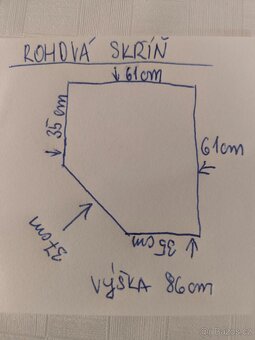 ROHOVÁ SKRÍŇ
61cm
35cm
61cm
37cm
35cm
VÝŠKA 86cm